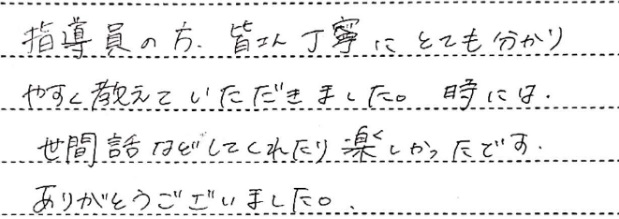 指導員の方、皆さん丁寧にとても分かり
やすく教えていただきました。時には、
世間話などしてくれたり楽しかったです。
ありがとうございました。